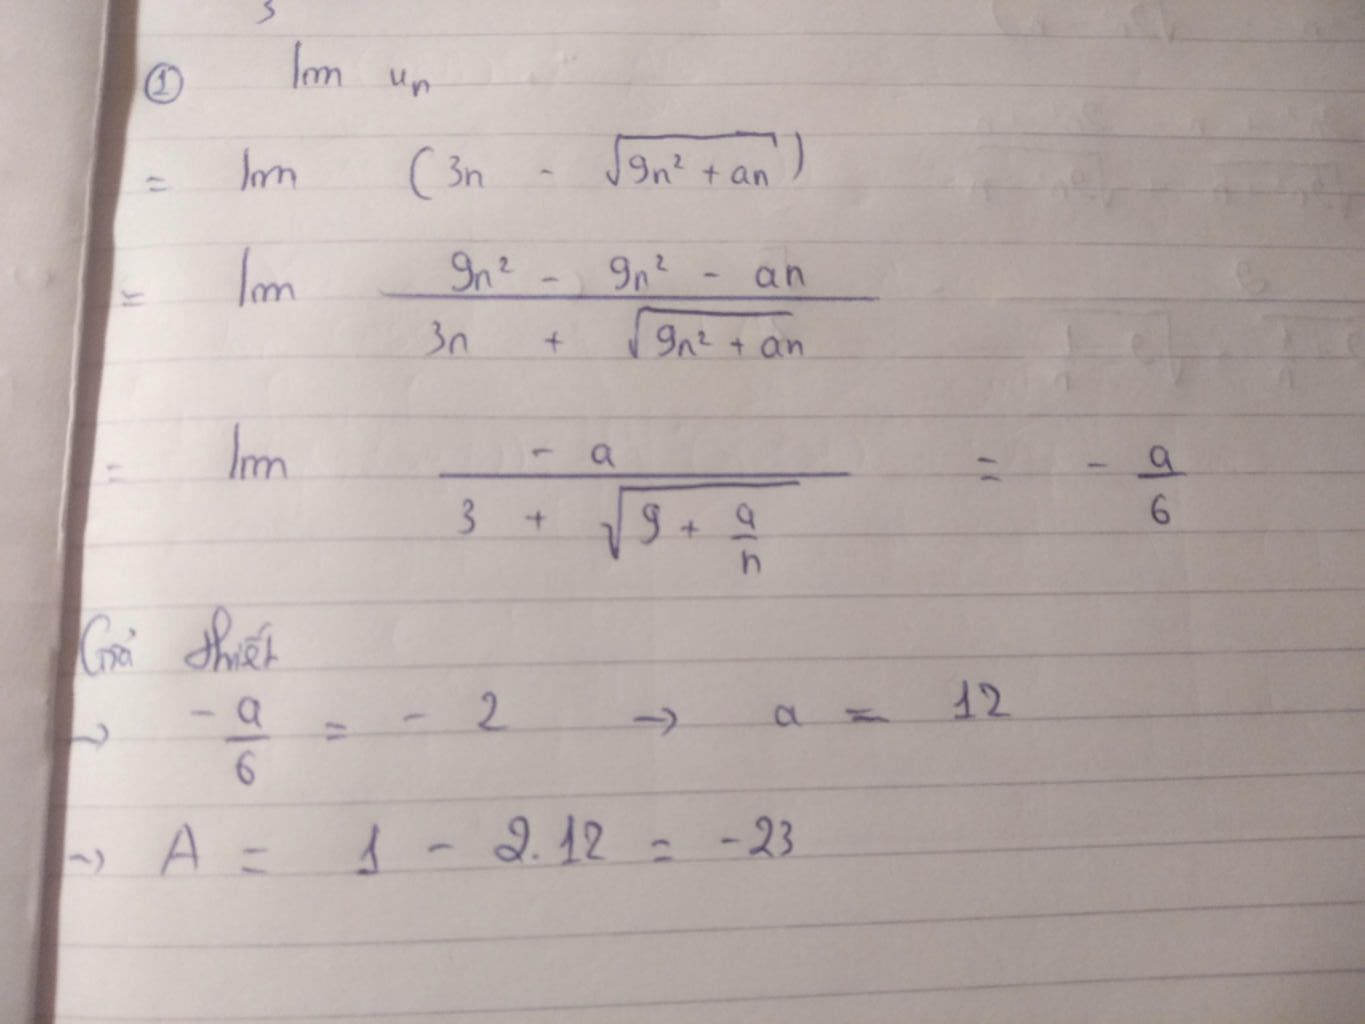 ① lim uₙ
= lim (3n - √(9n² + an))
= lim (9n² - 9n² - an) / (3n + √(9n² + an))
= lim (- a) / (3 + √(9 + a/n)) = - a/6
Giả thiết
→ - a/6 = - 2 → a = 12
→ A = 1 - 2.12 = -23